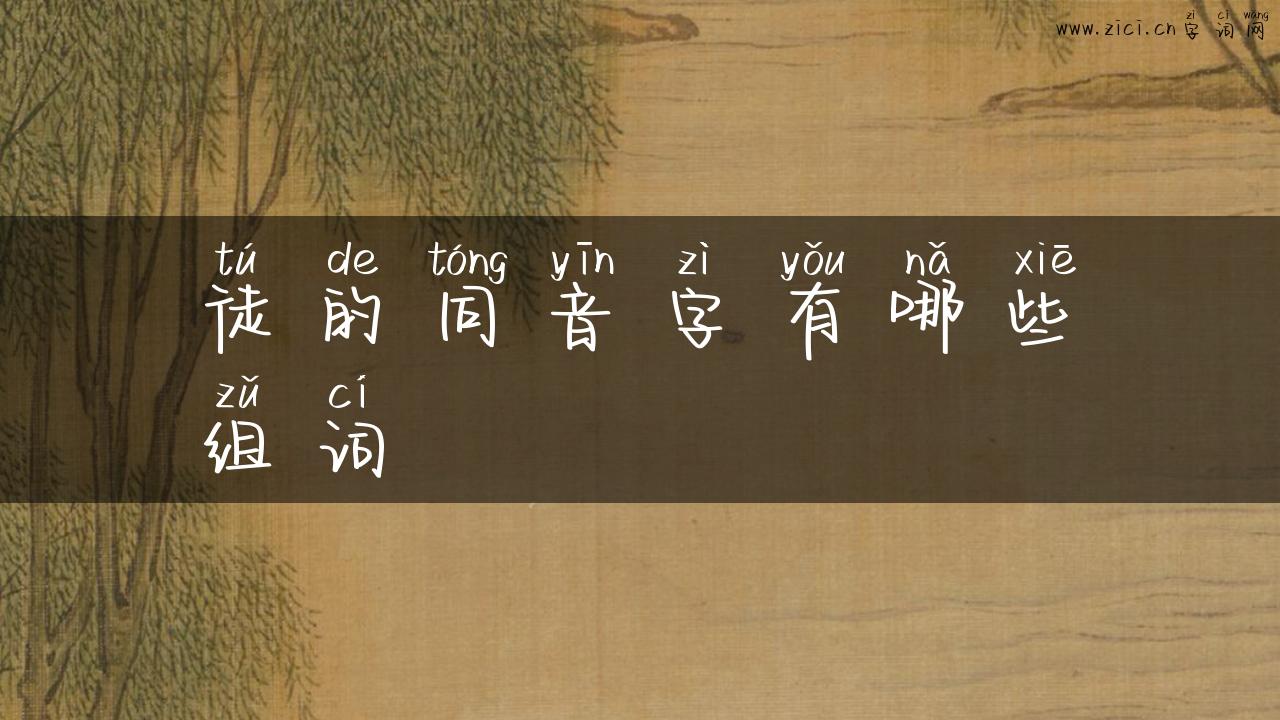 zì cí wǎng
www.zici.cn字词网
tú de tóng yīn zì yǒu nǎ xiē
徒的同音字有哪些
zǔ cí
组词